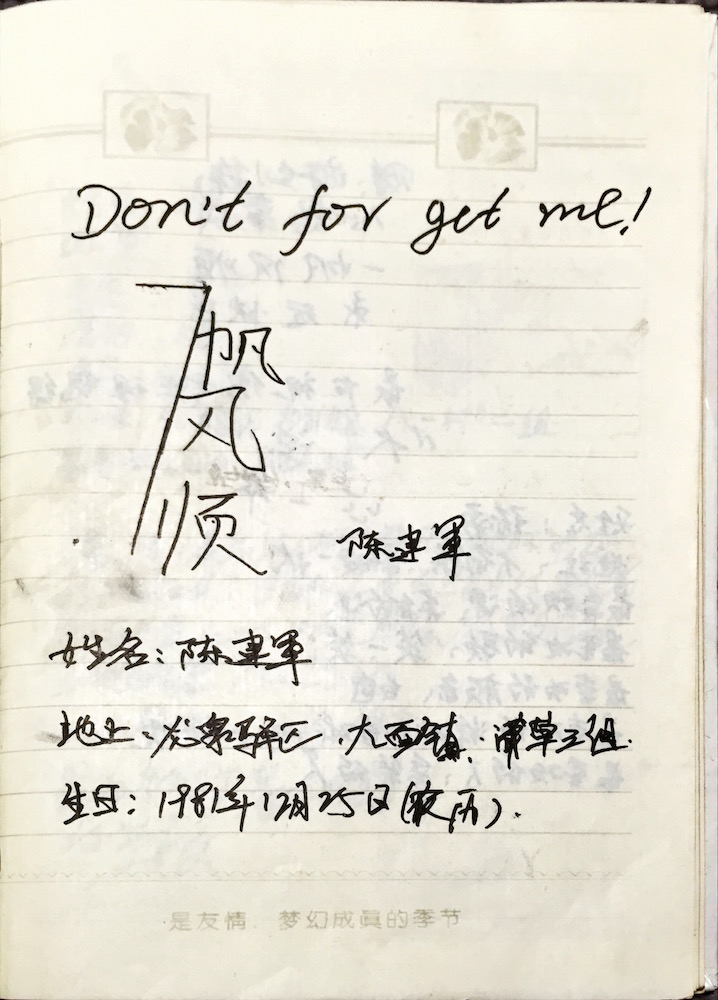 Don't for get me!
一帆风顺
陈建軍
姓名：陈建軍
地止：龙泉驿区、大面镇、蒲草三组.
生日：1981年12月25日(农历).
是友情 梦幻成員的季节